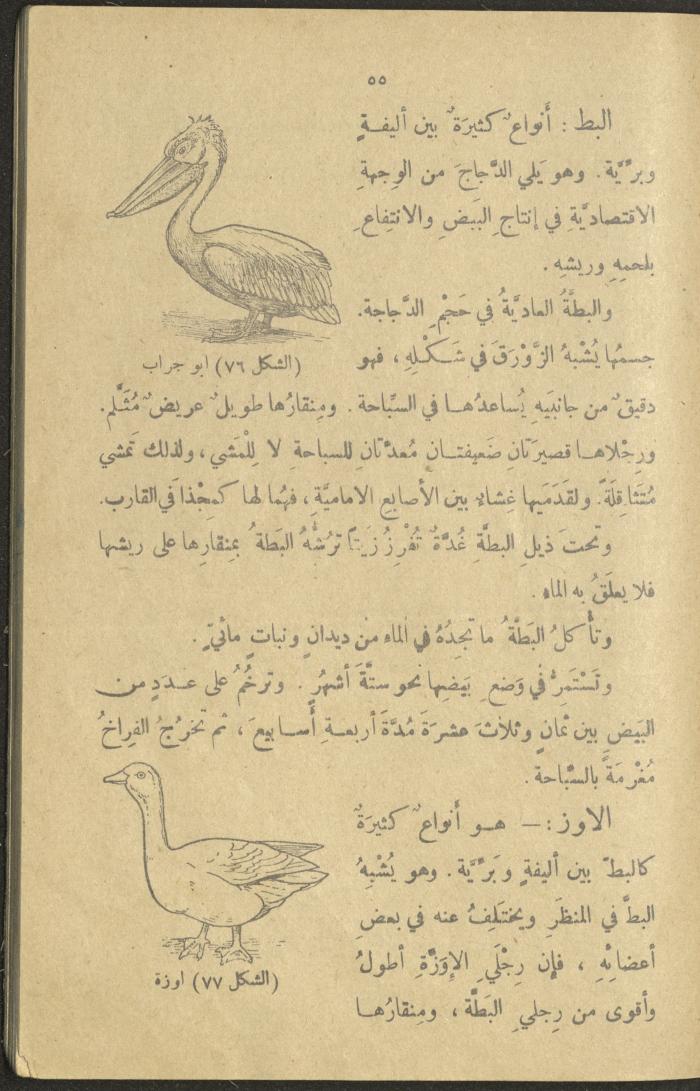 ٥٥
البط : أَنواعٌ كثيرَةٌ بين أليفـةٍ
وبرِّيَّة . وهو يَلي الدَّجاجَ من الوِجهةِ
الاقتصاديَّةِ في إنتاجِ البَيضِ والانتِفاعِ
بلحمِهِ وريشِهِ .
والبطَّةُ العاديَّةُ في حَجْمِ الدَّجاجة .
جسمُها يُشْبهُ الزَّوْرَقَ في شَـكْلِهِ ، فهو
(الشكل ٧٦) ابو جراب
دقيقٌ من جانبَيهِ يُساعدُهـا في السِّباحة . ومِنقارُها طويلٌ عريضٌ مُثَلَّم .
ورِجْلاهـا قصيرَتانِ ضَعيفتـان مُعدَّتانِ للسباحةِ لا لِلْمَشي ، ولذلك تَمشي
مُتَثاقِلَةً . ولقَدَمَيها غِشاءٌ بين الأصابعِ الاماميَّةِ ، فهُما لها كمِجْذافَي القارب .
وتحتَ ذيلِ البطَّةِ غُدَّةٌ تُفْرِزُ زَيتًا ترُشُّهُ البَطةُ بمِنقارِها على ريشها
فلا يعلَقُ به الماء .
وتأكلُ البَطَّةُ ما تجِدُهُ في الماءِ من ديدانٍ ونباتٍ مائيٍّ .
وتَسْتَمِرُّ في وَضعِ بَيضِها نحو ستَّةَ أشهُرٍ . وترخُمُ على عـدَدٍ من
البَيضِ بين ثمانٍ وثلاثَ عشرَةَ مُدَّةَ أربعـةِ أسـابيعَ ، ثم تخرُجُ الفِراخُ
مُغْرمَةً بالسِّباحة .
الاوز :— هـو أَنواعٌ كثيرَةٌ
كالبطِّ بين أليفةٍ وبَرِّيَّة . وهو يُشْبِهُ
البطَّ في المنظَرِ ويختَلِفُ عنه في بعضِ
أعضائِهِ ، فإن رِجْلَيِ الإوَزَّةِ أطولُ
(الشكل ٧٧) اوزة
وأقوى من رِجلي البَطَّة ، ومِنقارُهـا